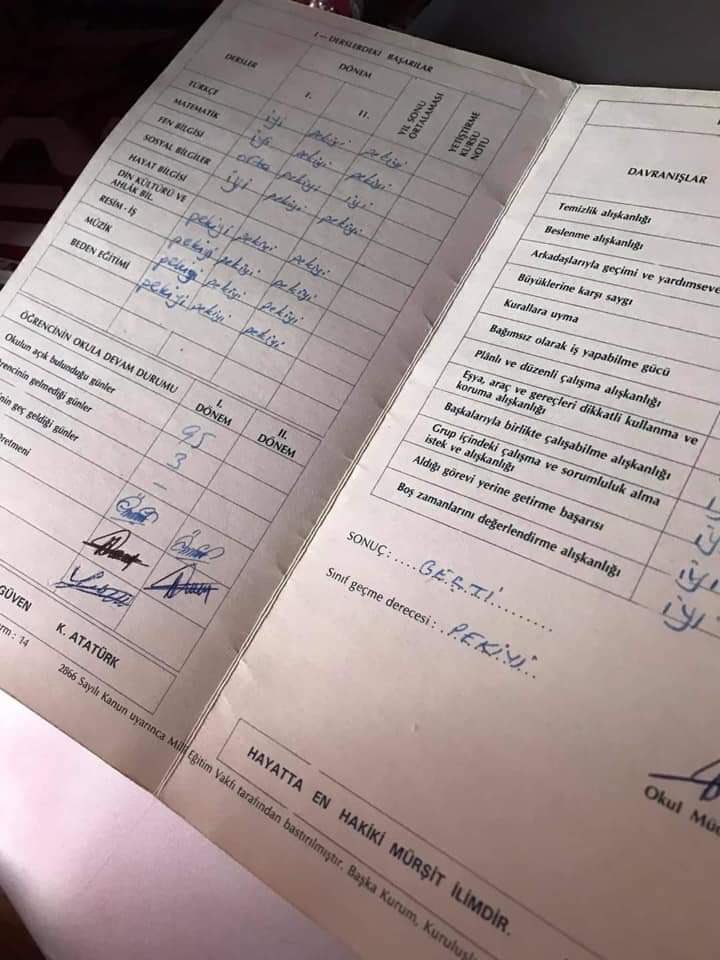 I — DERSLERDEKİ BAŞARILAR
DERSLER
DÖNEM
I.
II.
YIL SONU ORTALAMASI
YETİŞTİRME KURSU NOTU
TÜRKÇE iyi pekiyi pekiyi
MATEMATİK iyi pekiyi pekiyi
FEN BİLGİSİ orta pekiyi iyi
SOSYAL BİLGİLER iyi pekiyi pekiyi
HAYAT BİLGİSİ
DİN KÜLTÜRÜ VE AHLÂK BİL. pekiyi pekiyi pekiyi
RESİM - İŞ pekiyi pekiyi pekiyi
MÜZİK pekiyi pekiyi pekiyi
BEDEN EĞİTİMİ
ÖĞRENCİNİN OKULA DEVAM DURUMU
I. DÖNEM
II. DÖNEM
Okulun açık bulunduğu günler 95
rencinin gelmediği günler 3
nin geç geldiği günler —
retmeni
GÜVEN
K. ATATÜRK
rm : 14
2866 Sayılı Kanun uyarınca Milli Eğitim Vakfı tarafından bastırılmıştır. Başka Kurum, Kuruluşla
DAVRANIŞLAR
Temizlik alışkanlığı
Beslenme alışkanlığı
Arkadaşlarıyla geçimi ve yardımseve
Büyüklerine karşı saygı
Kurallara uyma
Bağımsız olarak iş yapabilme gücü
Plânlı ve düzenli çalışma alışkanlığı
Eşya, araç ve gereçleri dikkatli kullanma ve
koruma alışkanlığı
Başkalarıyla birlikte çalışabilme alışkanlığı
Grup içindeki çalışma ve sorumluluk alma
istek ve alışkanlığı
Aldığı görevi yerine getirme başarısı
Boş zamanlarını değerlendirme alışkanlığı
iyi
iyi
SONUÇ : GEÇTİ
Sınıf geçme derecesi : PEKİYİ
Okul Müd
HAYATTA EN HAKİKİ MÜRŞİT İLİMDİR.